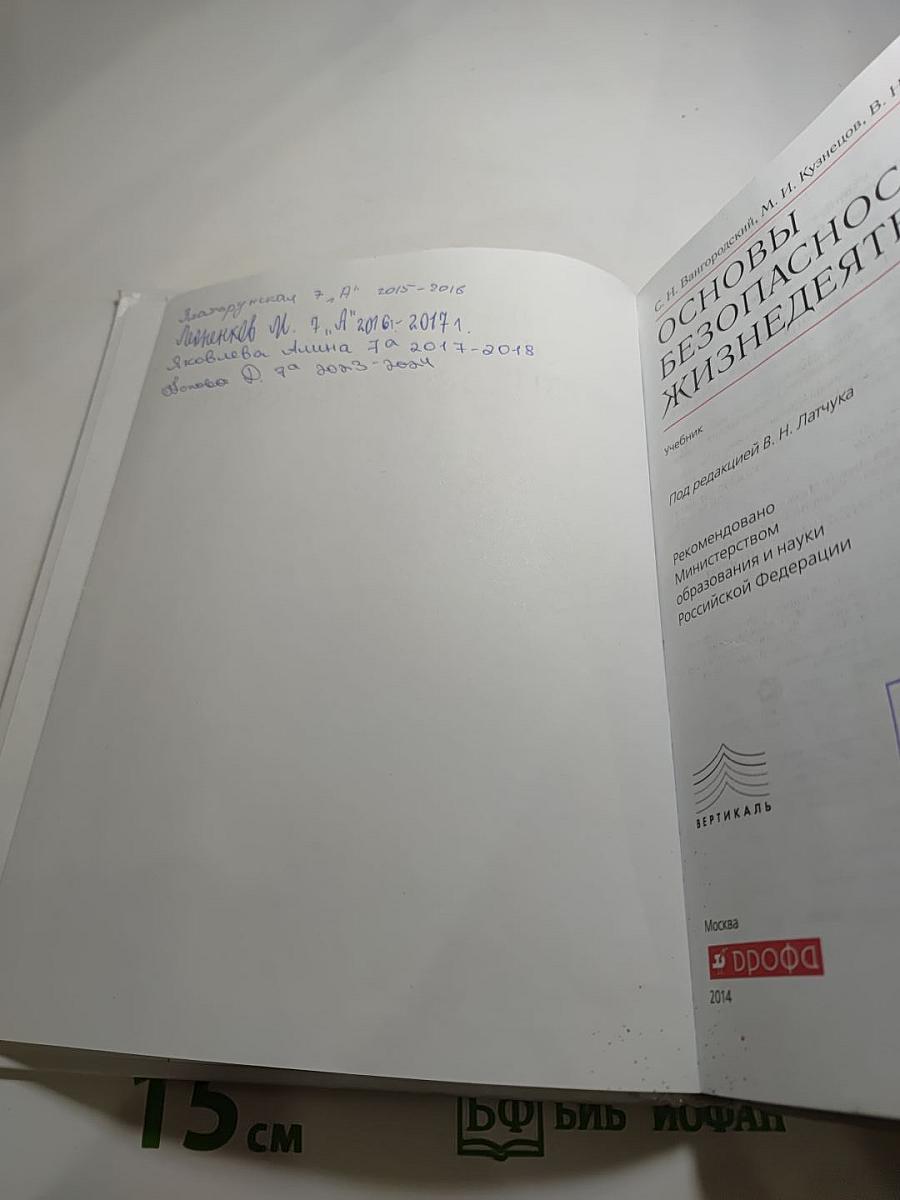 7 „А" 2015-2016
И. 7 „А" 2016-2017 г.
Яковлева Алина 7а 2017-2018
Д. 9а 2023-2024
С. Н. Вангородский, М. И. Кузнецов, В. Н
ОСНОВЫ
БЕЗОПАСНОС
ЖИЗНЕДЕЯТЕ
учебник
Под редакцией В. Н. Латчука
Рекомендовано
Министерством
образования и науки
Российской Федерации
ВЕРТИКАЛЬ
Москва
ДРОФА
2014
15 см
БФ БИБ ИОФАН